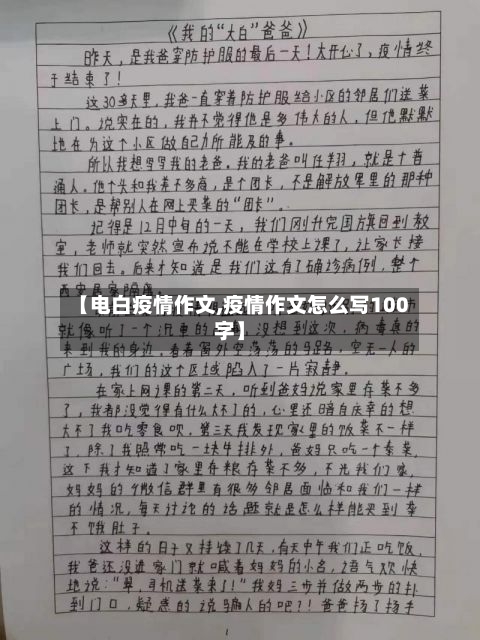 《我的“大白”爸爸》
昨天，是我爸穿防护服的最后一天！太开心了，疫情终
于结束了！
这30多天里，我爸一直穿着防护服给小区的邻居们送菜
上门。说实在的，我并不觉得他是多伟大的人，但他默默
地在为这个小区做自己力所能及的事。
所以我想写写我的老爸。我的老爸叫任翔，就是个普
通人。他个头和我差不多高，是个团长，不是解放军里的那种
团长，是帮别人在网上买菜的“团长”。
记得是12月中旬的一天，我们刚升完国旗回到教
室，老师就突然宣布说不能在学校上课了，让家长接
我们回去。后来才知道是我们这有了确诊病例，整个
西安居家隔离。
【电白疫情作文,疫情作文怎么写100
字】
就像听了一个沉重的 没想到这次，病毒真的
来到我的身边，看着窗外空荡荡的马路，空无一人的
广场，我们的这个区域陷入了一片寂静。
在家上网课的第二天，听到爸妈说家里存菜不多
了，我都没觉得有什么大不了的，心里还暗自庆幸的想
大不了我吃零食呗，第三天我发现家里的饭菜不一样
了，除了我照常吃一块牛排外，爸妈只吃一个素菜，
这下我才知道了家里存粮存菜不多，不光我们家，
妈妈的个微信群里有很多邻居面临和我们一样
的情况，每天讨论的话题就是怎么样能买到菜
不饿肚子。
这样的日子又持续了几天，有天中午我们正吃饭，
我爸还没进家门就喊着妈妈的小名，语气欢快
地说：“翠，司机送菜来了！”我妈三步并做两步的扑
到门口，疑惑的说骗人的吧？！爸爸扬了扬手
1